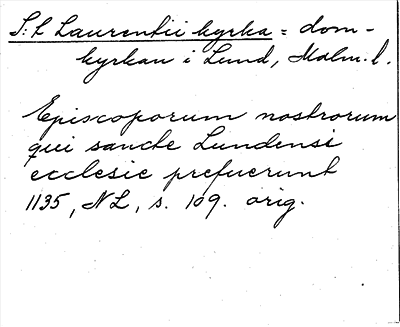 S:t Laurentii kyrka = dom-
kyrkan i Lund, Malm. l.
Episcoporum nostrorum
qui sancte Lundensi
ecclesie prefuerunt
1135, NL, s. 109. orig.